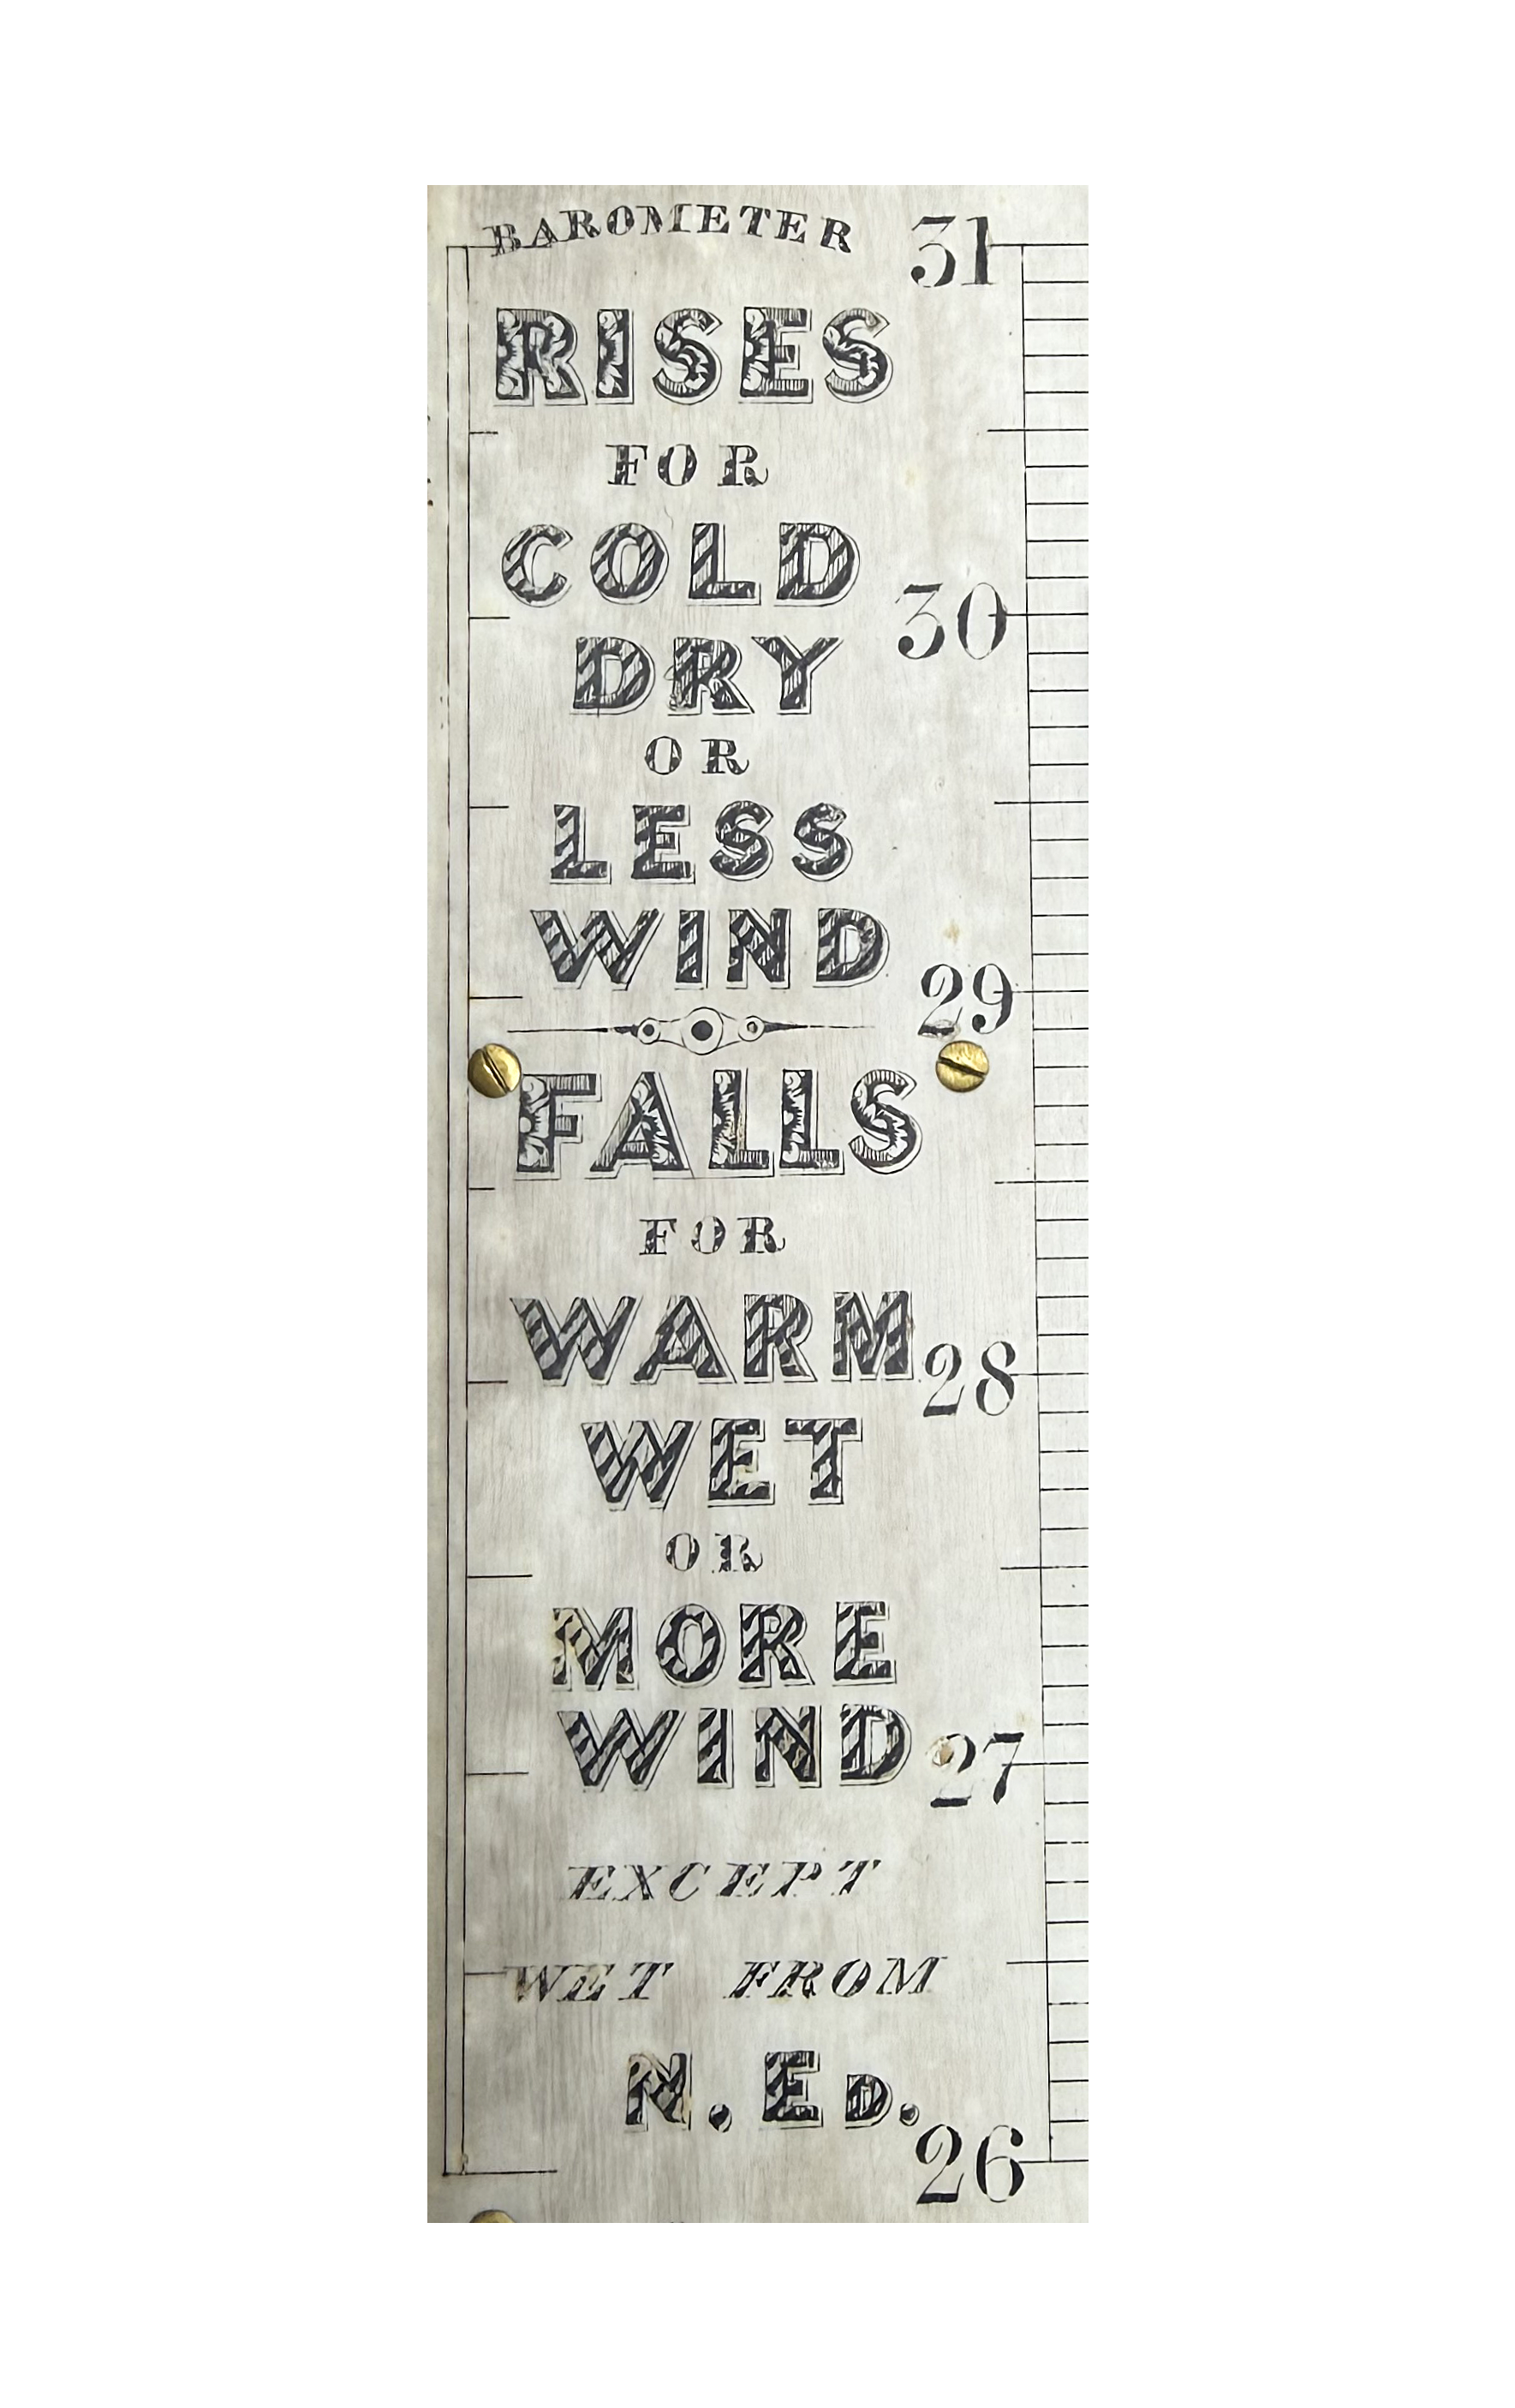 BAROMETER 31
RISES
FOR
COLD
30
DRY
OR
LESS
WIND
29
FALLS
FOR
WARM
28
WET
OR
MORE
WIND
27
EXCEPT
WET FROM
N. ED.
26